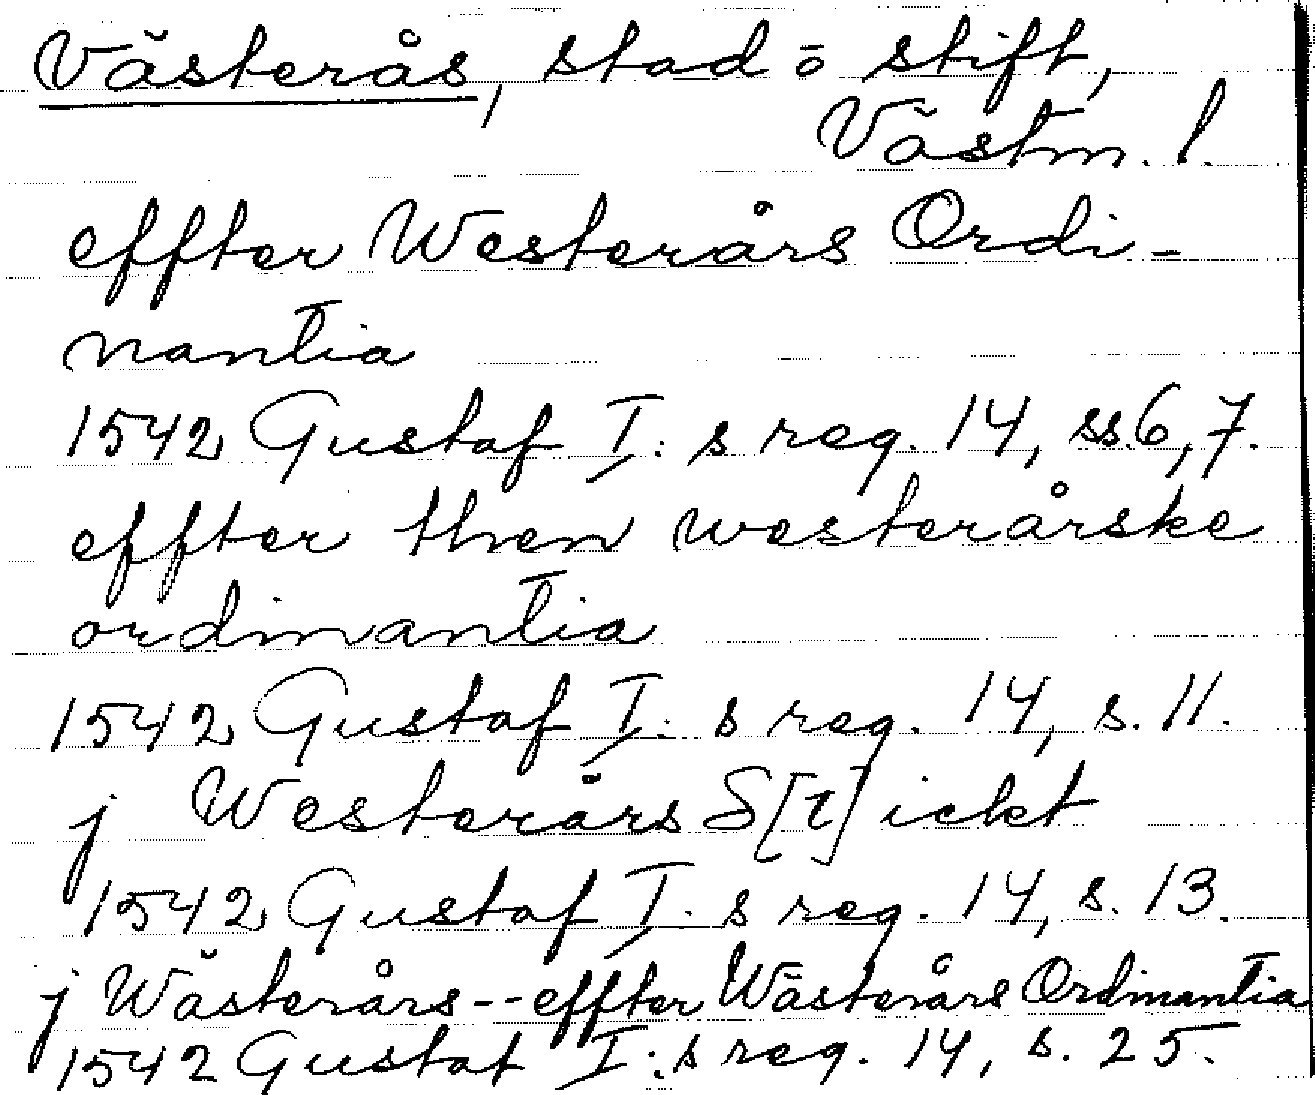 Västerås, stad o stift,
Västm. l.
effter Westerårs Ordi-
nantia
1542 Gustaf I:s reg. 14, ss. 6, 7.
effter then westerårske
ordinantia
1542 Gustaf I:s reg. 14, s. 11.
j Westerårs S[t]ickt
1542 Gustaf I:s reg. 14, s. 13.
j Wästerårs -- effter Wästerårs Ordinantia
1542 Gustaf I:s reg. 14, s. 25.